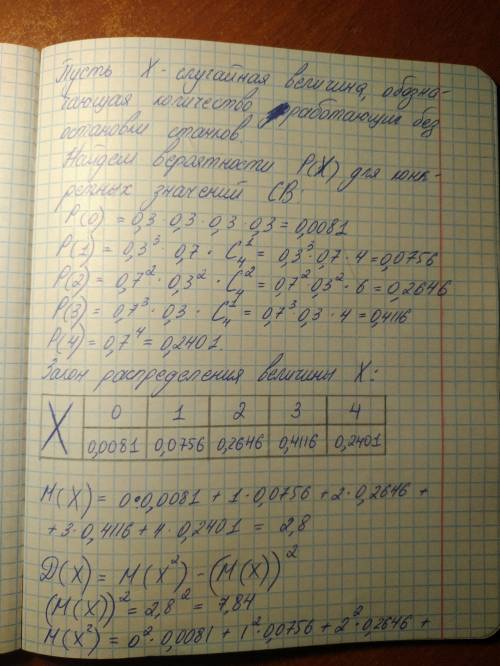 Пусть X - случайная величина, обозна-
чающая количество работающих без
остановки станков.
Найдем вероятности P(X) для конк-
ретных значений СВ:
P(0) = 0,3 · 0,3 · 0,3 · 0,3 = 0,0081
P(1) = 0,3³ · 0,7 · C₄¹ = 0,3³ · 0,7 · 4 = 0,0756
P(2) = 0,7² · 0,3² · C₄² = 0,7² 0,3² · 6 = 0,2646
P(3) = 0,7³ · 0,3 · C₄¹ = 0,7³ 0,3 · 4 = 0,4116
P(4) = 0,7⁴ = 0,2401.
Закон распределения величины X:
X 0 1 2 3 4
0,0081 0,0756 0,2646 0,4116 0,2401
M(X) = 0 · 0,0081 + 1 · 0,0756 + 2 · 0,2646 +
+ 3 · 0,4116 + 4 · 0,2401 = 2,8
D(X) = M(X²) - (M(X))²
(M(X))² = 2,8² = 7,84
M(X²) = 0² · 0,0081 + 1² · 0,0756 + 2² · 0,2646 +